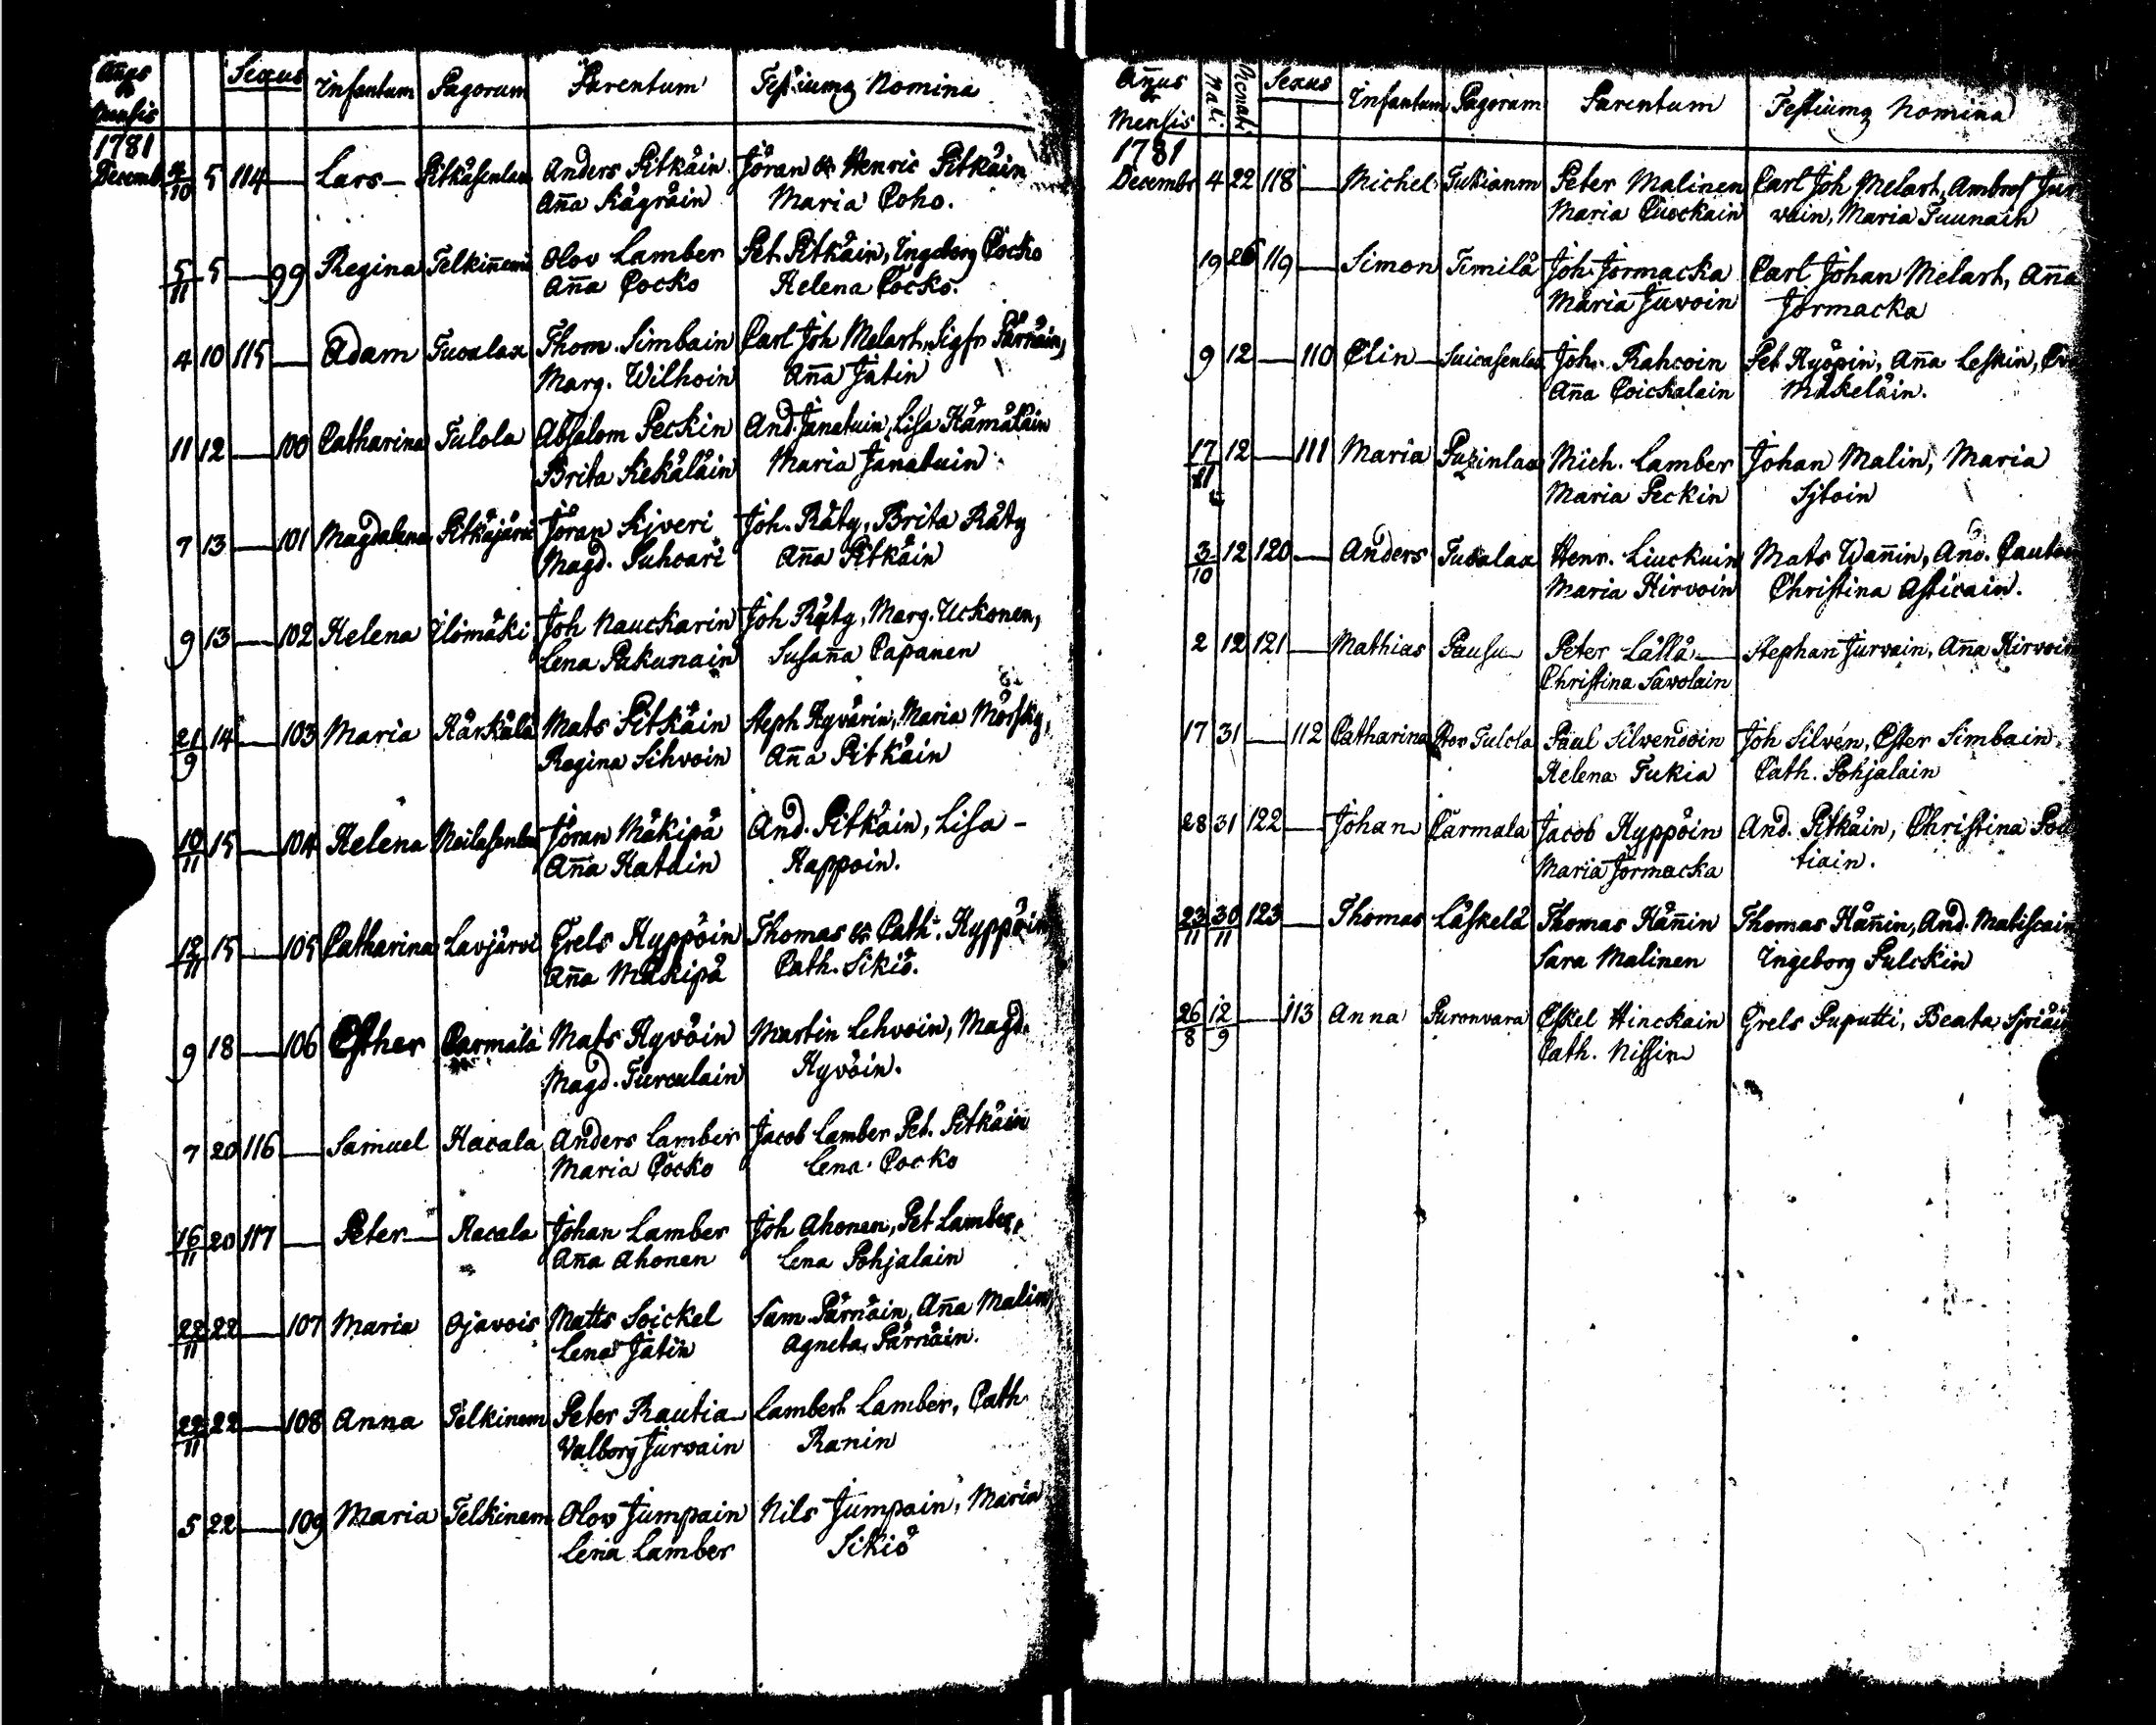 Años & Mensis Sexus Infantum Pagorum Parentum Testiumq Nomina
1781
Decemb. 5 114 — Lars — Pitkäsenlax Anders Pitkäin Jöran & Henric Pitkäin
Aña Kägräin Maria Coho.
5/11 5 — 99 Regina Telkiñemi Olov Lamber Pet. Pitkäin, Ingeborg Cocko
Aña Cocko Helena Cocko.
4 10 115 — Adam Tuoalax Thom. Simbain Carl Joh Melart, Sigfr Pärnäin,
Marg. Wilhoin Aña Jatin
11 12 — 100 Catharina Tulola Absalom Peckin And. Janatuin, Lisa Hämäläin
Brita Kekäläin Maria Janatuin
7 13 — 101 Magdalena Pitkäjärvi Jöran Kjveri Joh. Räty, Brita Räty
Magd. Suhoari Aña Pitkäin
9 13 — 102 Helena Ilömäki Joh Nauckarin Joh Räty, Marg. Uckonen,
Lena Pakunain Susaña Papanen
21/9 14 — 103 Maria Härkälä Mats Pitkäin Steph Hyvärin, Maria Mörsky,
Regina Sihvoin Aña Pitkäin
10/11 15 — 104 Helena Jöran Mäkipä And. Pitkäin, Lisa -
Aña Hatain Happoin.
12/11 15 — 105 Catharina Lavjärvi Grels Hyppöin Thomas & Cath. Hyppöin
Aña Mäkipä Cath. Sikiö.
9 18 — 106 Esther Carmala Mats Hyvöin Martin Lehvoin, Magd.
Magd. Turculain Hyvöin.
7 20 116 — Samuel Hacala Anders Lamber Jacob Lamber Pet. Pitkäin
Maria Cocko Lena Cocko
16/11 20 117 — Peter — Hacala Johan Lamber Joh Ahonen, Pet Lamber,
Aña Ahonen Lena Pohjalain
22/11 22 — 107 Maria Ojavois Matts Soickel Sam. Pärnäin, Aña Malin,
Lena Jatin Agneta Pärnäin.
22/11 22 — 108 Anna Telkinem Peter Rautia Lambert Lamber, Cath
Valborg Jurvain Ranin
5 22 — 109 Maria Telkinem Olov Jumpain Nils Jumpain, Maria
Lena Lamber Sikiö
Añus & Mensis Nati Renati Sexus Infantum Pagorum Parentum Testiumq Nomina
1781
Decembr 4 22 118 — Michel Tukianm Peter Malinen Carl Joh Melart, Ambros Jur
Maria Cuockain vain, Maria Tuunain
19 26 119 — Simon Timilä Joh. Jormacka Carl Johan Melart, Aña
Maria Juvoin Jormacka
9 12 — 110 Elin Joh. Rahcoin Pet Hyöpin, Aña Leskin,
Aña Coickalain Mäkeläin.
17/11 12 — 111 Maria Puzinlax Mich. Lamber Johan Malin, Maria
Maria Peckin Sjtoin
3/10 12 120 — Anders Tuoalax Henr. Liuckuin Mats Wañin, And.
Maria Hirvoin Christina Asicain.
2 12 121 — Mathias Pausu Peter Lällä Stephan Jurvain, Aña Hirvoin
Christina Savolain
17 31 — 112 Catharina Stor Tulola Paul Silvendoin Joh Silvén, Ester Simbain
Helena Tukia Cath. Pohjalain
28 31 122 — Johan Carmala Jacob Hyppöin And. Pitkäin, Christina
Maria Jormacka tiain.
23/11 30/11 123 — Thomas Läskelä Thomas Häñin Thomas Häñin, And. Matiscain
Sara Malinen Ingeborg Pulckin
26/8 12/9 — 113 Anna Puronvara Eskel Hinckain Grels Puputti, Beata
Cath. Nissin